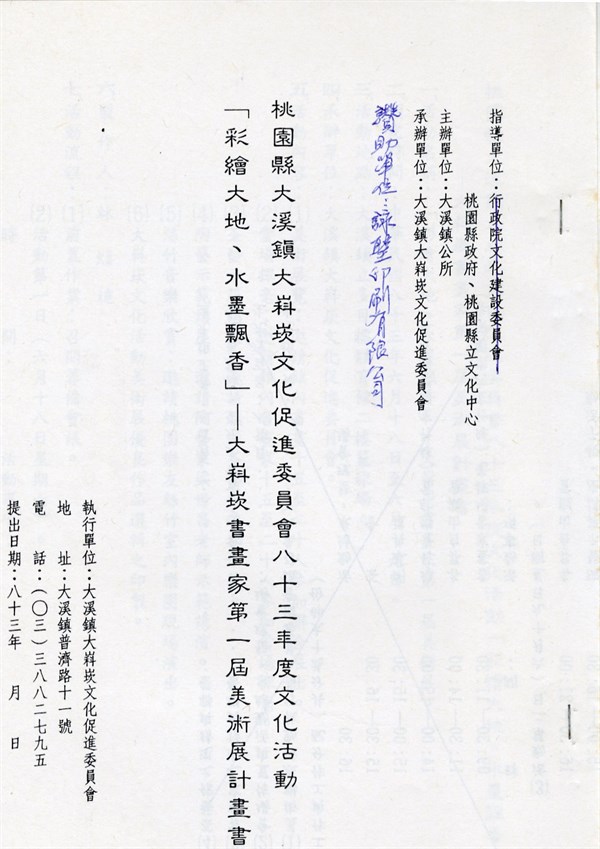 指導單位：行政院文化建設委員會
桃園縣政府、桃園縣立文化中心
主辦單位：大溪鎮公所
承辦單位：大溪鎮大嵙崁文化促進委員會
贊助單位：詠墅印刷有限公司
桃園縣大溪鎮大嵙崁文化促進委員會八十三年度文化活動
「彩繪大地、水墨飄香」—大嵙崁書畫家第一屆美術展計畫書
執行單位：大溪鎮大嵙崁文化促進委員會
地　　址：大溪鎮普濟路十一號
電　　話：（〇三）三八八二七九五
提出日期：八十三年　月　日